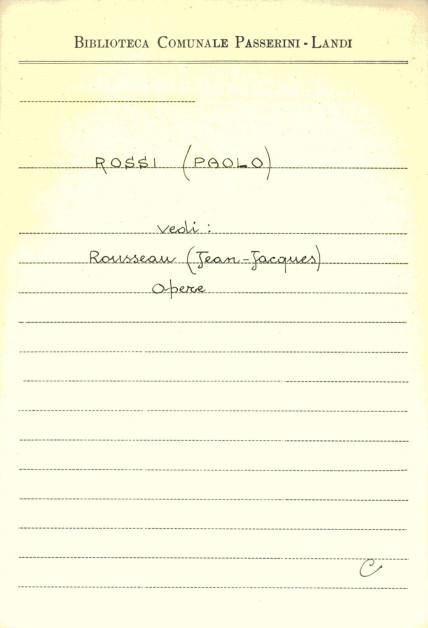 BIBLIOTECA COMUNALE PASSERINI - LANDI
ROSSI (PAOLO)
vedi :
Rousseau (Jean-Jacques)
Opere
C